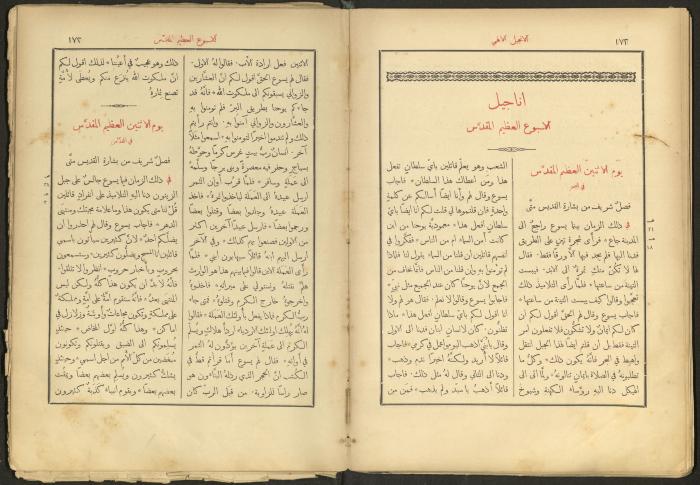 ١٧٢
الانجيل الالهي
اناجيل
الاسبوع العظيم المقدّس
يوم الاثنين العظيم المقدّس
في السحر
فصلٌ شريف من بشارة القديس متى
في ذلك الزمان بينا يسوع راجعٌ الى
المدينة جاع * فرأى شجرة تينٍ على الطريق
فدنا اليها فلم يجد فيها الا ورقًا فقط. فقال
لها لا تكن منكِ ثمرةٌ الى الابد. فيبست
التينة من ساعتها * فلمّا رأى التلاميذ ذلك
تعجبوا وقالوا كيف يبست التينة من ساعتها *
فاجاب يسوع وقال لهم الحق اقول لكم ان
كان لكم ايمانٌ ولا تشكّون فلا تفعلون امر
التينة فقط بل ان قلتم ايضًا لهذا الجبل انتقل
واهبط في البحر فانه يكون ذلك * وكلّ ما
تطلبونه في الصلاة بايمانٍ تنالونه * ولمّا اتى الى
الهيكل دنا اليه رؤساء الكهنة وشيوخ
الشعب وهو يعلّم قائلين بايّ سلطانٍ تفعل
هذا ومن اعطاك هذا السلطان * فاجاب
يسوع وقال لهم وانا ايضًا أسألكم عن كلمةٍ
واحدة فان قلتموها لي قلت لكم انا ايضًا بايّ
سلطانٍ افعل هذا * معمودية يوحنا من اين
كانت أمن السماء ام من الناس * ففكّروا في
أنفسهم قائلين ان قلنا من السماء يقول لنا فلماذا
لم تؤمنوا به وان قلنا من الناس فانا نخاف من
الجمع لانّ يوحنا كان عند الجميع مثل نبيّ *
فاجابوا يسوع وقالوا لا نعلم. فقال هو لهم ولا
انا اقول لكم بايّ سلطانٍ افعل هذا * ماذا
تظنون. كان لانسان ابنان فدنا الى الاول
وقال يا بنيّ اذهب اليوم واعمل في كرمي * فاجاب
قائلًا لا أريد ولكنّهُ اخيرًا ندم وذهب *
ودنا الى الثاني وقال له مثل ذلك. فاجاب
قائلًا أذهب يا سيّد ولم يذهب * فمن من
الاسبوع العظيم المقدّس
١٧٣
الاثنين فعل ارادة الأب. فقالوا له الاول.
فقال لهم يسوع الحقّ اقول لكم انّ العشّارين
والزواني يسبقونكم الى ملكوت الله * فانه قد
جاءكم يوحنا بطريق البرّ فلم تؤمنوا به
والعشّارون والزواني آمنوا به. وانتم رأيتم
ذلك ولم تندموا اخيرًا لتؤمنوا به * اسمعوا مثلًا
آخر. انسانٌ ربّ بيتٍ غرس كرمًا وحوّطهُ
بسياجٍ وحفر فيه معصرةً وبنى برجًا وسلّمه
الى عملةٍ وسافر * فلمّا قرب أوان الثمر
ارسل عبيدهُ الى العملة لياخذوا ثمرهُ * فاخذ
العملة عبيدهُ وجلدوا بعضًا وقتلوا بعضًا
ورجموا بعضًا * فارسل عبيدًا آخرين اكثر
من الاولين فصنعوا بهم كذلك * وفي الآخر
ارسل اليهم ابنهُ قائلًا سيهابون ابني * فلمّا
رأى العملة الابن قالوا فيما بينهم هذا هو الوارث
هلمّ نقتلهُ ونستولي على ميراثه * فاخذوهُ
واخرجوهُ خارج الكرم وقتلوهُ * فمتى جاء
ربّ الكرم فماذا يفعل بأولئك العملة * فقالوا
لهُ انّهُ يهلك اولئك الارديا اردأ هلاكٍ ويسلّم
الكرم الى عملةٍ آخرين يؤدّون لهُ الثمر
في أوانه * فقال لهم يسوع أما قرأتم قطّ في
الكتب انّ الحجر الذي رذلهُ البنّاءون هو
صار رأسًا للزاوية. من قِبَل الربّ كان
ذلك وهو عجيبٌ في أعيننا * لذلك اقول لكم
انّ ملكوت الله يُنزع منكم ويُعطى لأمّةٍ
تصنع ثمارهُ
يوم الاثنين العظيم المقدّس
في القدّاس
فصلٌ شريف من بشارة القديس متى
في ذلك الزمان فيما يسوع جالسٌ على جبل
الزيتون دنا اليه التلاميذ على انفرادٍ قائلين
قُلْ لنا متى يكون هذا وما علامة مجيئك ومنتهى
الدهر * فاجاب يسوع وقال لهم احذروا ان
يضلّكم احدٌ * لانّ كثيرين سيأتون باسمي
قائلين انا المسيح ويضلّون كثيرين * وستسمعون
بحروبٍ وباخبار حروبٍ * انظروا لا تقلقوا.
فانّهُ لا بدّ ان يكون هذا كلّهُ ولكن ليس
المنتهى بعدُ * فانّهُ ستقوم امّةٌ على امّةٍ ومملكةٌ
على مملكةٍ وتكون مجاعاتٌ واوبئةٌ وزلازل في
اماكن * وهذا كلّهُ اوّل المخاض * حينئذٍ
يُسلمونكم الى الضيق ويقتلونكم وتكونون
مبغضين من كلّ الامم من اجل اسمي * وحينئذٍ
يشكّ كثيرون ويسلّم بعضهم بعضًا ويمقت
بعضهم بعضًا * ويقوم انبياء كذبةٌ كثيرون